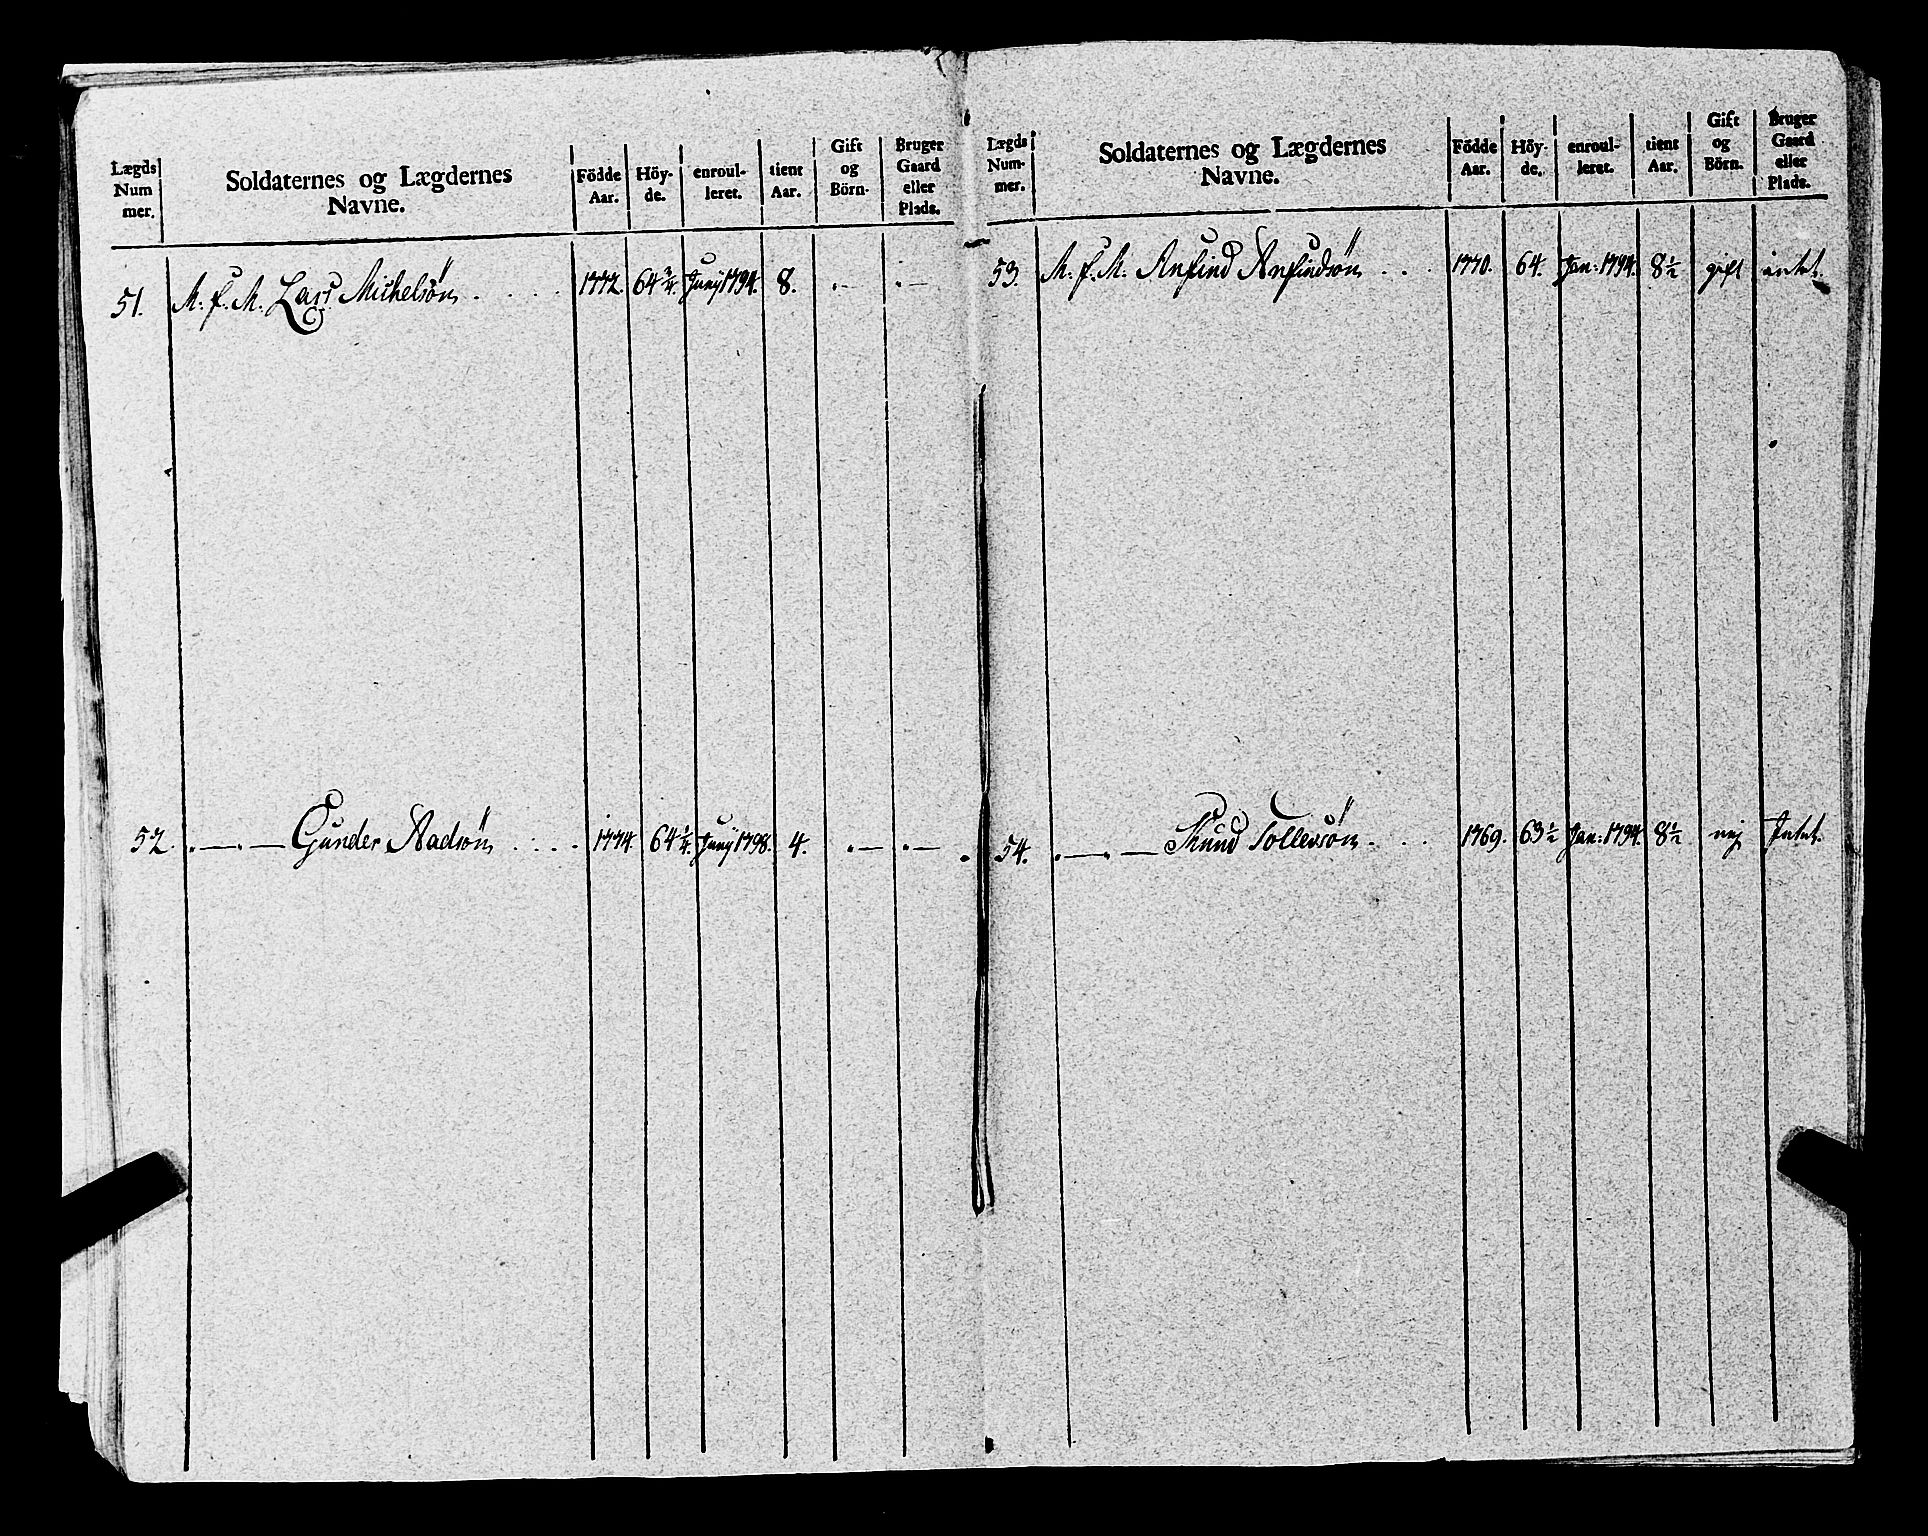 Lægds Num mer. Soldaternes og Lægdernes Navne. Födde Aar. Höy-de. enroul-leret. tient Aar. Gift og Börn. Bruger Gaard eller Plads.
51. M. f. M. Lars Michelsön . . . . 1772. 64 3/4. Junÿ 1794. 8. . — . —
52. . — . — Gunder Aadsön . . . . 1774. 64 1/4. Junÿ 1798. 4. . — . —
Lægds Num-mer. Soldaternes og Lægdernes Navne. Födde Aar. Höy-de. enroul-leret. tient Aar. Gift og Börn. Bruger Gaard eller Plads.
53. M. f. M. Anfind Anfindsön . . . 1770. 64. Jan: 1794. 8 1/2 gift intet.
54. . — . — Knud Tollevsön . . . 1769. 63 1/2 Jan: 1794. 8 1/2 nej Intet.